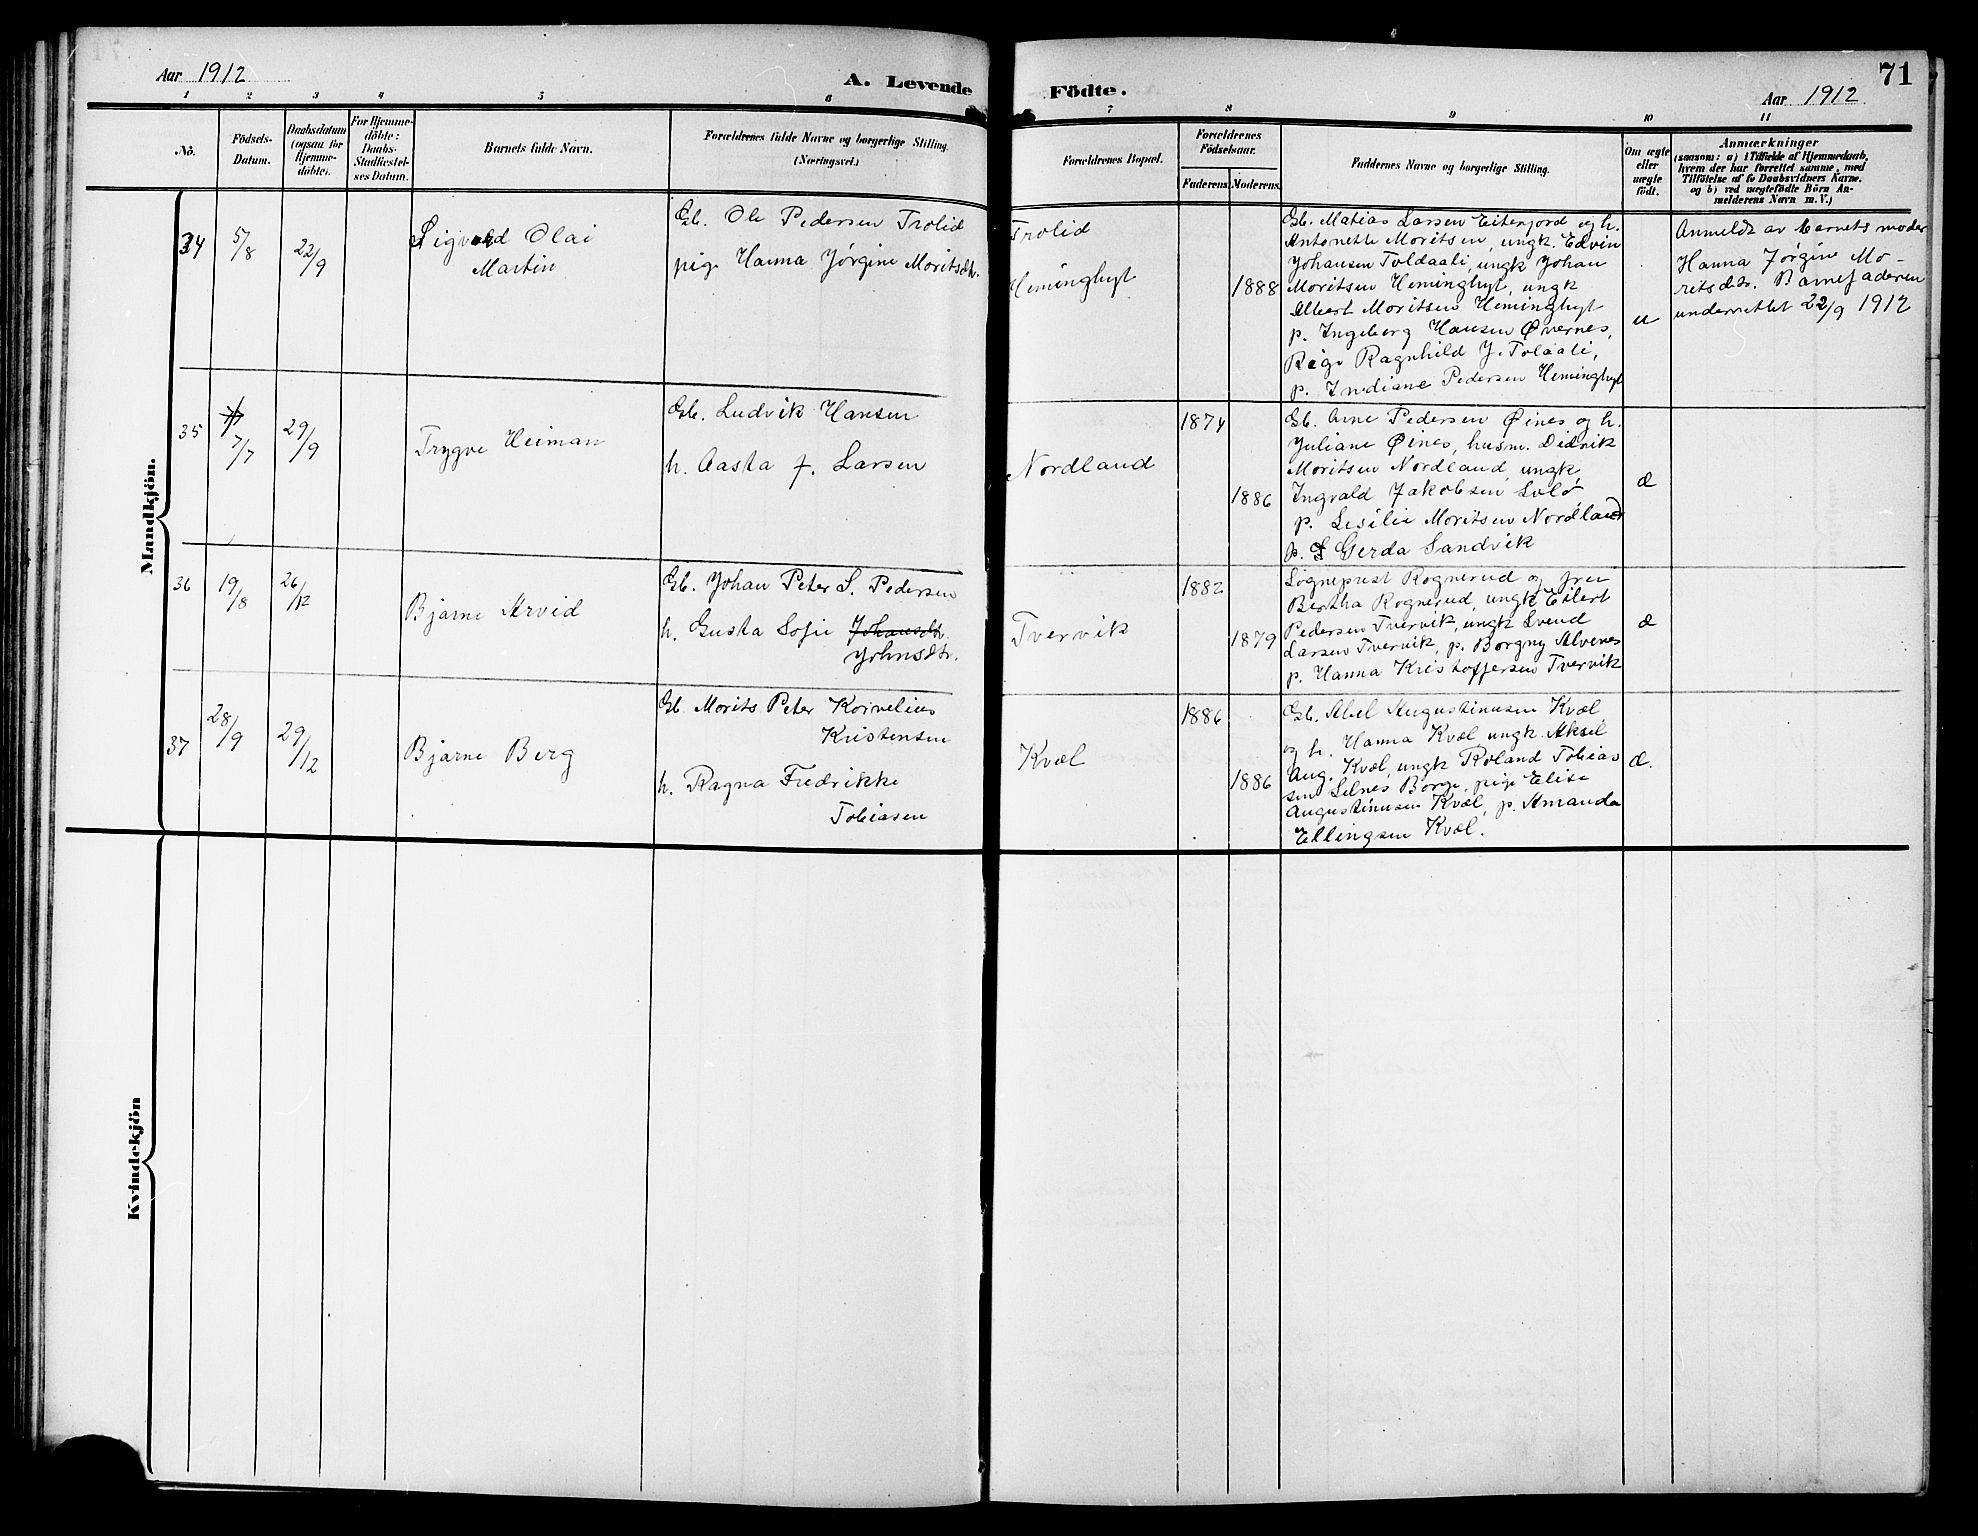 Aar 1912
A. Levende
Födte.
Aar 1912
71
1 2 3 4 5 6 7 8 9 10 11
No.
Födsels-
Datum.
Daabsdatum
(ogsaa for
Hjemme-
döbte).
For Hjemme-
döbte:
Daabs-
Stadfæstel-
ses Datum.
Barnets fulde Navn.
Forældrenes fulde Navne og borgerlige Stilling.
(Næringsvei.)
Forældrenes Bopæl.
Forældrenes
Födselsaar.
Faderens.
Moderens.
Faddernes Navne og borgerlige Stilling.
Om ægte
eller
uægte
födt.
Anmærkninger
(saasom: a) i Tilfælde af Hjemmedaab,
hvem der har forrettet samme, med
Tilföielse af to Daabsvidners Navne.
og b) ved uægtefödte Börn An-
melderens Navn m. V.)
Mandkjön.
34
5/8
22/9
Sigvald Olai
Martin
Gb. Ole Pedersen Trolid
pige Hanna Jørgine Moritsdtr.
Trolid
Heminghyt
1888
Gb. Matias Larsen Eiterjord og h.
Antonette Moritsen, ungk. Edvin
Johansen Toldaali, ungk Johan
Moritsen Heminghyt, ungk
Albert Moritsen Heminghyt
p. Ingeborg Hansen Øvernes,
Pige Ragnhild J. Tolaali,
p. Indiane Pedersen Heminghyt
u
Anmeldt av barnets moder
Hanna Jørgine Mo-
ritsdtr. Barnefaderen
underrettet 22/9 1912
35
7/7
29/9
Trygve Heiman
Gb. Ludvik Hansen
h. Aasta f. Larsen
Nordland
1874
1886
Gb. Arne Pedersen Øines og h.
Juliane Øines, husm. Didrik
Moritsen Nordland ungk
Ingvald Jakobsen Solø
p. Lesilie Moritsen Nordland
p. Gerda Sandvik
æ
36
19/8
26/12
Bjarne Arvid
Gb. Johan Peter S. Pedersen
h. Gusta Sofie Johansdtr.
Johnsdtr.
Tvervik
1882
1879
Sogneprest Rognerud og frue
Bertha Rognerud, ungk Eilert
Pedersen Tvervik, ungk Svend
Larsen Tvervik, p. Borgny Alvenes
p. Hanna Kristoffersen Tvervik
æ
37
28/9
29/12
Bjarne Berg
Gb. Morits Peter Kornelius
Kristensen
h. Ragna Fredrikke
Tobiasen
Kvæl
1886
1886
Gb. Abel Augustinusen Kvæl
og h. Hanna Kvæl ungk. Aksel
Aug. Kvæl, ungk Roland Tobias
sen Selnes Borge, pige Elise
Augustinusen Kvæl, p. Amanda
Ellingsen Kvæl.
æ.
Kvindekjön